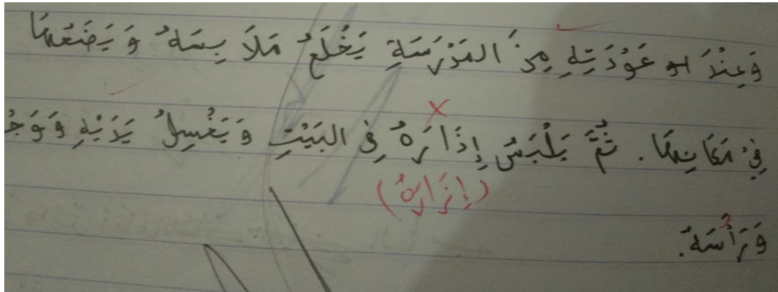 وَعِنْدَ عَوْدَتِهِ مِنَ المَدْرَسَةِ يَخْلَعُ مَلَابِسَهُ وَيَضَعُهَا
فِيْ مَكَانِهَا. ثُمَّ يَلْبَسُ إِذَارَهُ فِي البَيْتِ وَيَغْسِلُ يَدَيْهِ وَوَجْ
(إِزَارَهُ)
وَرَأْسَهُ.